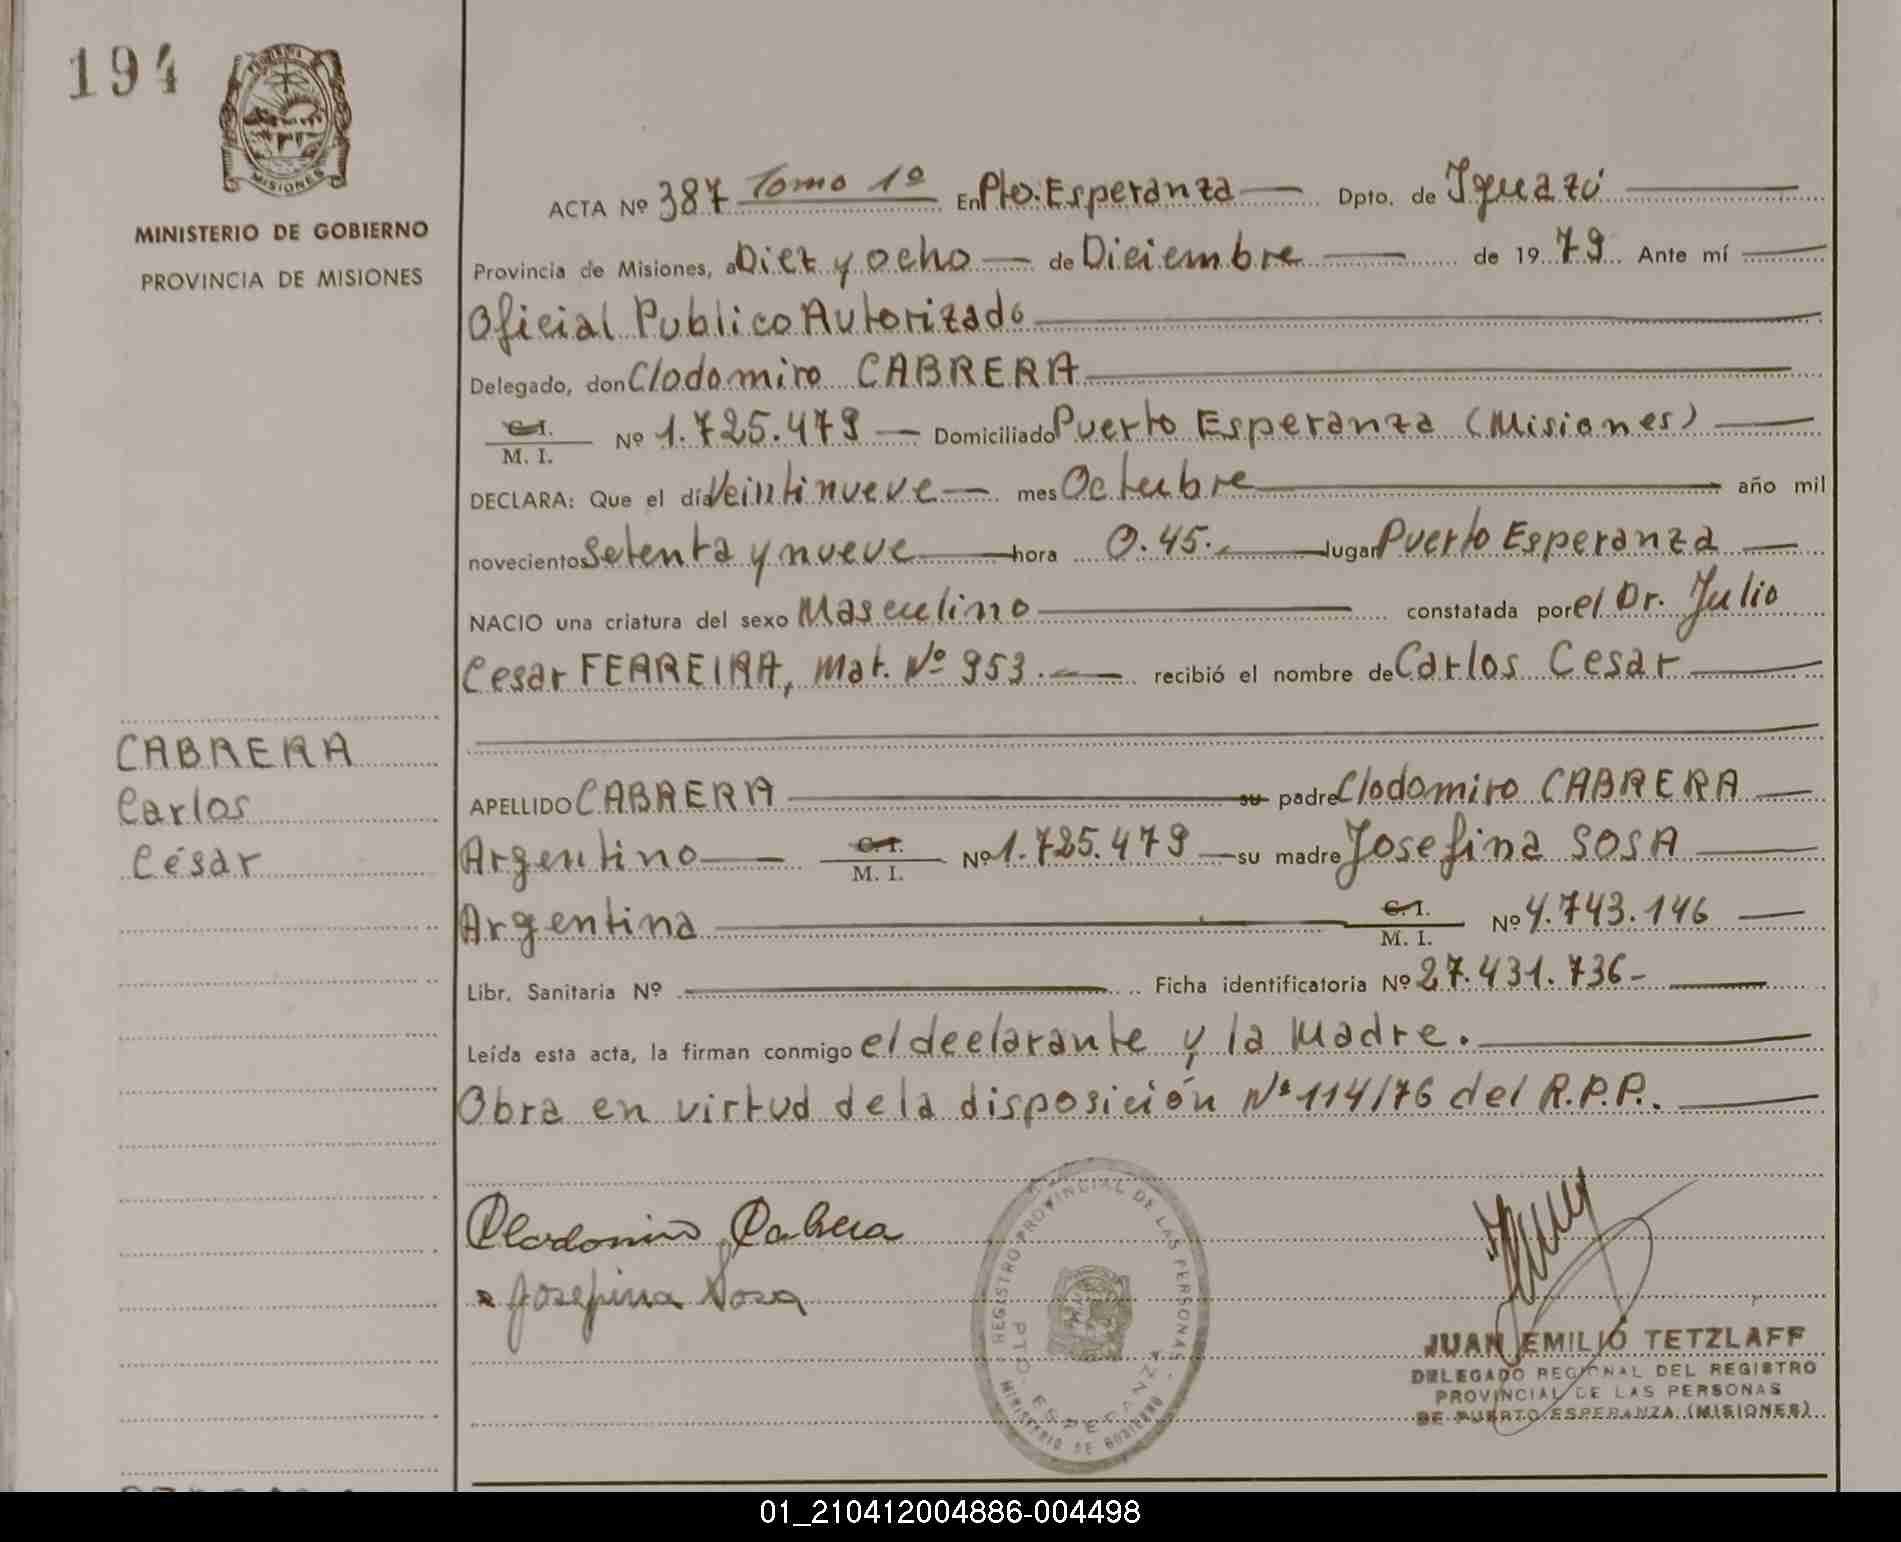 194
MISIONES
MINISTERIO DE GOBIERNO
PROVINCIA DE MISIONES
ACTA Nº 387 Tomo 1º En Pto. Esperanza Dpto. de Iguazú
Provincia de Misiones, a Diez y ocho de Diciembre de 19 79 Ante mí
Oficial Publico Autorizado
Delegado, don Clodomiro CABRERA
C.I.
M. I. Nº 1.725.479 Domiciliado Puerto Esperanza (Misiones)
DECLARA: Que el día Veintinueve mes Octubre año mil
novecientos Setenta y nueve hora 0.45. lugar Puerto Esperanza
NACIO una criatura del sexo Masculino constatada por el Dr. Julio
Cesar FERREIRA, Mat. Nº 953. recibió el nombre de Carlos Cesar
CABRERA
Carlos
César
APELLIDO CABRERA su padre Clodomiro CABRERA
Argentino C.I. M. I. Nº 1.725.479 su madre Josefina SOSA
Argentina C.I. M. I. Nº 4.743.146
Libr. Sanitaria Nº Ficha identificatoria Nº 27.431.736-
Leída esta acta, la firman conmigo el declarante y la Madre.
Obra en virtud de la disposición Nº 114/76 del R.P.P.
Clodomiro Cabrera
Josefina Sosa
REGISTRO PROVINCIAL DE LAS PERSONAS
PTO. ESPERANZA
MINISTERIO DE GOBIERNO
JUAN EMILIO TETZLAFF
DELEGADO REGIONAL DEL REGISTRO
PROVINCIAL DE LAS PERSONAS
DE PUERTO ESPERANZA (MISIONES)
01_210412004886-004498